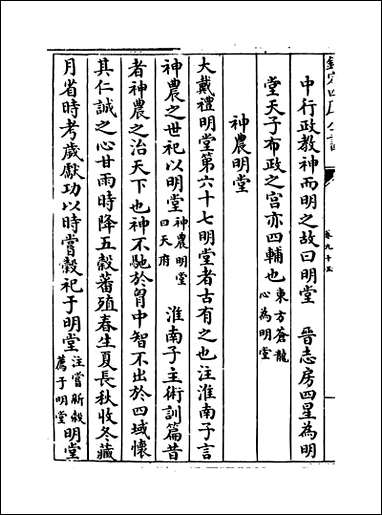 欽定四庫全書
卷九十五
中行政教神而明之故曰明堂　晉志房四星為明
堂天子布政之宫亦四輔也東方蒼龍心為明堂
神農明堂
大戴禮明堂第六十七明堂者古有之也注淮南子言
神農之世祀以明堂神農明堂曰天府　淮南子主術訓篇昔
者神農之治天下也神不馳於胷中智不出於四域懷
其仁誠之心甘雨時降五穀蕃殖春生夏長秋收冬藏
月省時考歲獻功以時嘗穀祀于明堂注嘗新穀薦于明堂明堂